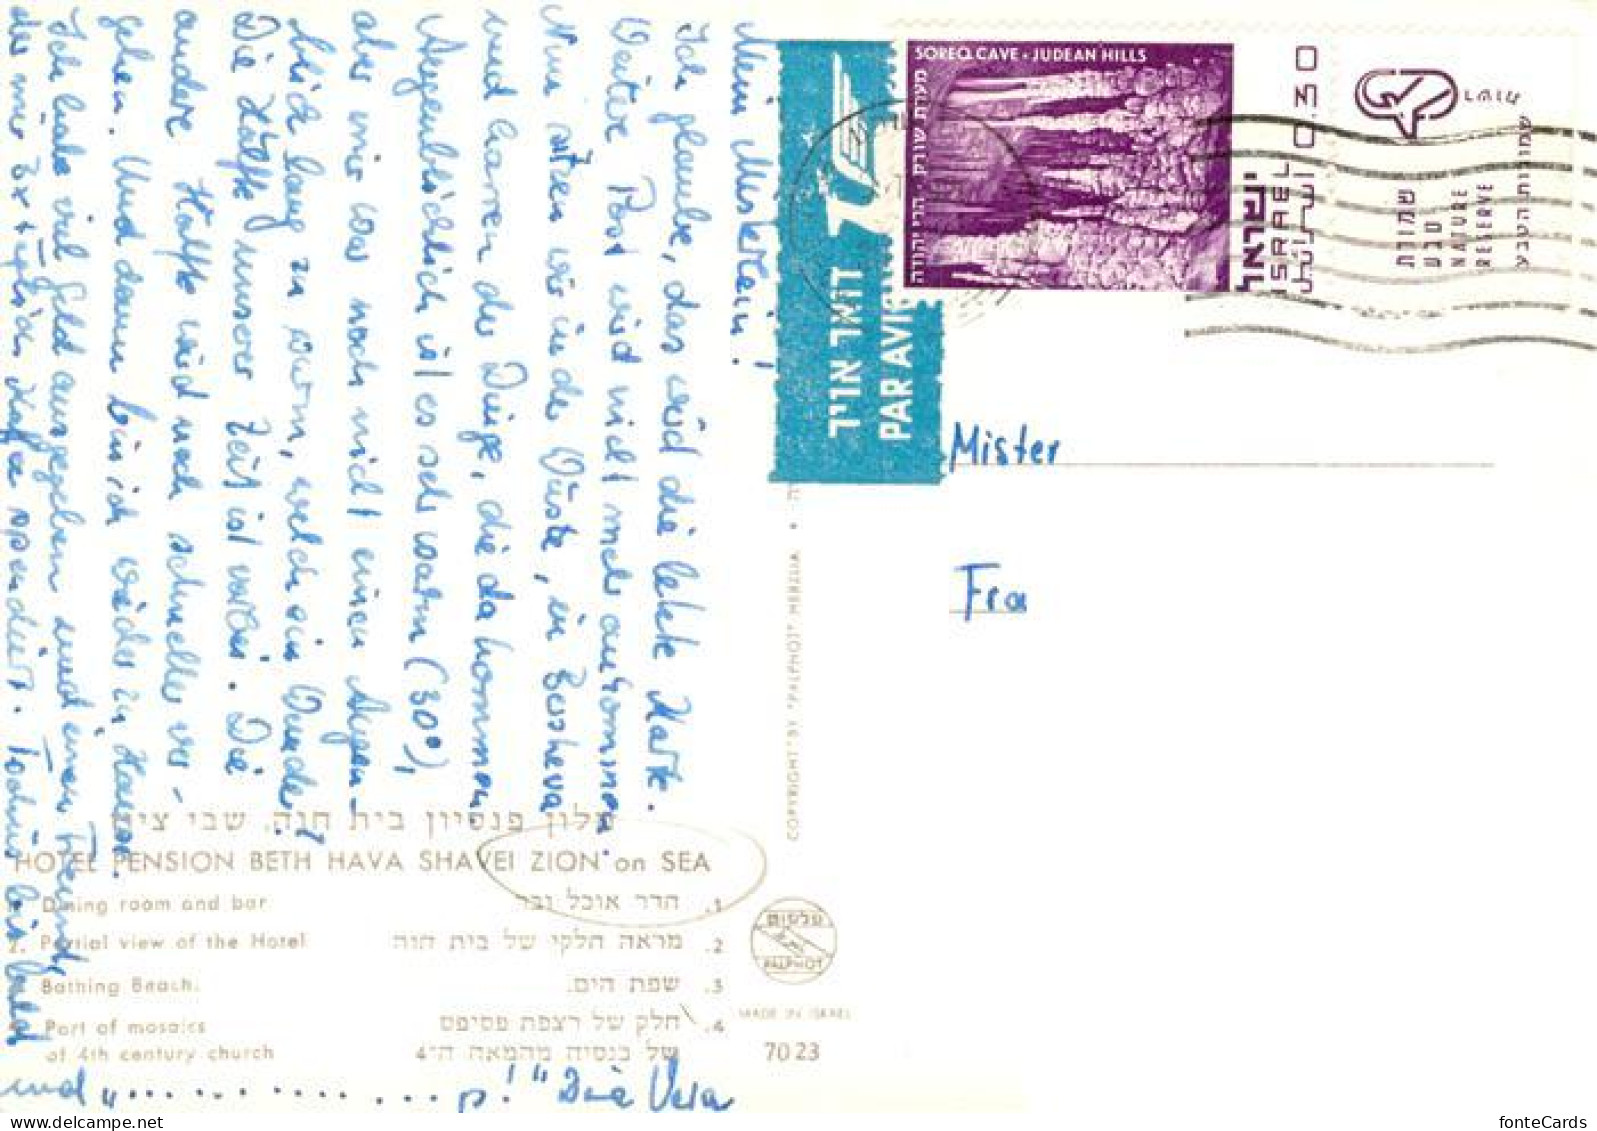 Mein Musterein!
Ich glaube, das wird die letzte Karte.
Weitere Post wird nicht mehr ankommen.
Nun sitzen wir in der Wüste, in Bersheva
und harren der Dinge, die da kommen.
Augenblicklich ist es sehr warm (30°),
aber mir war noch nicht einen Augen-
blick lang zu warm, welch ein Wunder!
Die Hälfte unserer Zeit ist vorbei. Die
andere Hälfte wird noch schneller ver-
gehen. Und dann bin ich wieder zu Hause.
Ich habe viel Geld ausgegeben und einen Freund,
der mir 3x täglich Kaffee spendiert. Tschüs bis bald
und "............p!" Deine Vera
SOREQ CAVE · JUDEAN HILLS
מערת שורק · הרי יהודה
ישראל
ISRAEL
0.30
שמורת
טבע
NATURE
RESERVE
שמורות הטבע
דואר אויר
PAR AVION
Mister
Fra
COPYRIGHT BY "PALPHOT" HERZLIA
מלון פנסיון בית חוה, שבי ציון
HOTEL PENSION BETH HAVA SHAVEI ZION on SEA
1. Dining room and bar
1. חדר אוכל ובר
2. Partial view of the Hotel
2. מראה חלקי של בית חוה
Bathing Beach.
3. שפת הים.
Part of mosaics
of 4th century church
4. חלק של רצפת פסיפס
של כנסיה מהמאה ה-4
פלפוט
PALPHOT
MADE IN ISRAEL
7023
fonteCards